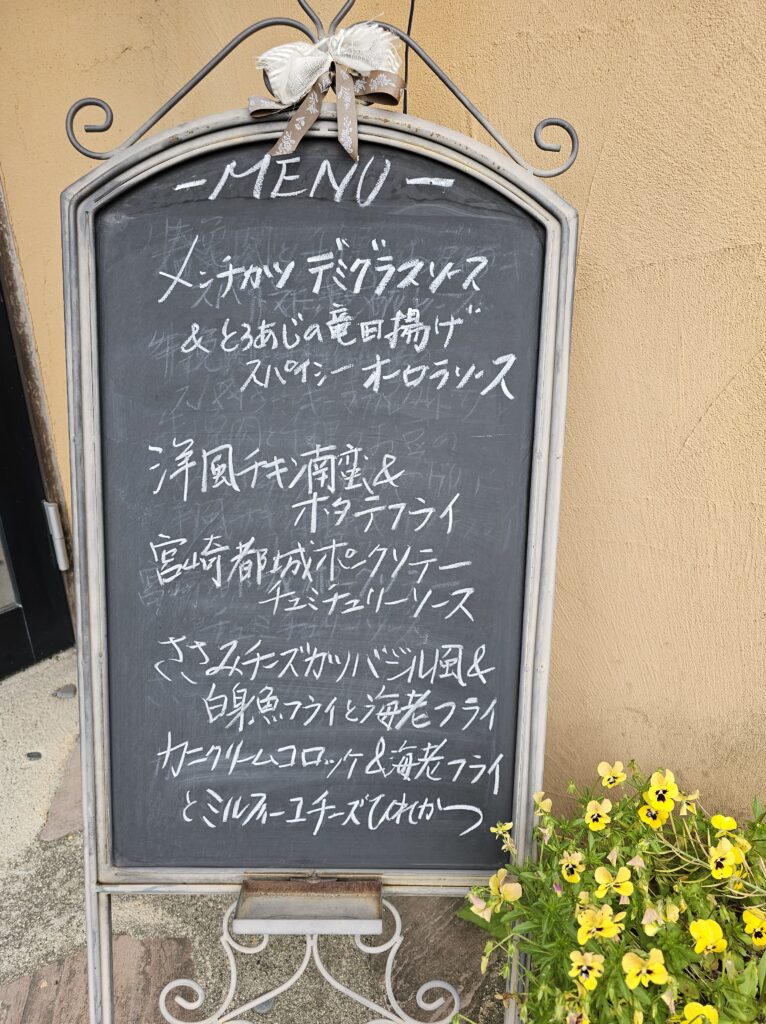 －MENU－
メンチカツ デミグラスソース
&とろあじの竜田揚げ
スパイシー オーロラソース
洋風チキン南蛮&
ホタテフライ
宮崎都城ポークソテー
チュミチュリーソース
ささみチーズカツバジル風&
白身魚フライと海老フライ
カニクリームコロッケ&海老フライ
とミルフィーユチーズひれかつ